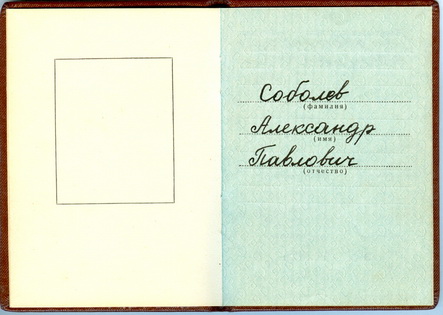 Соболев
(фамилия)
Александр
(имя)
Павлович
(отчество)